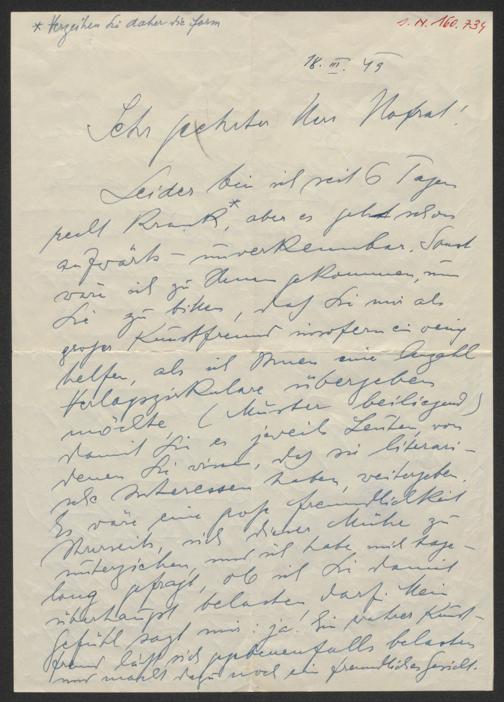 * Verzeihen Sie daher die Form
I. N. 160.734
18. III. 49
Sehr geehrter Herr Hofrat!
Leider bin ich seit 6 Tagen
recht krank*, aber es geht schon
aufwärts – unverkennbar. Sonst
wäre ich zu Ihnen gekommen, um
Sie zu bitten, daß Sie mir als
großer Kunstfreund insofern ein wenig
helfen, als ich Ihnen eine Anzahl
Verlagszirkulare übergeben
möchte, (Muster beiliegend)
damit Sie es jeweils Leuten, von
denen Sie wissen, daß sie literari-
sche Interessen haben, weitergeben.
Es wäre eine große Freundlichkeit
Ihrerseits, sich dieser Mühe zu
unterziehen, und ich habe mich tage-
lang gefragt, ob ich Sie damit
überhaupt belasten darf. Mein
Gefühl sagt mir: ja! Ein wahrer Kunst-
freund läßt sich gegebenenfalls belasten
und macht dazu noch ein freundliches Gesicht.